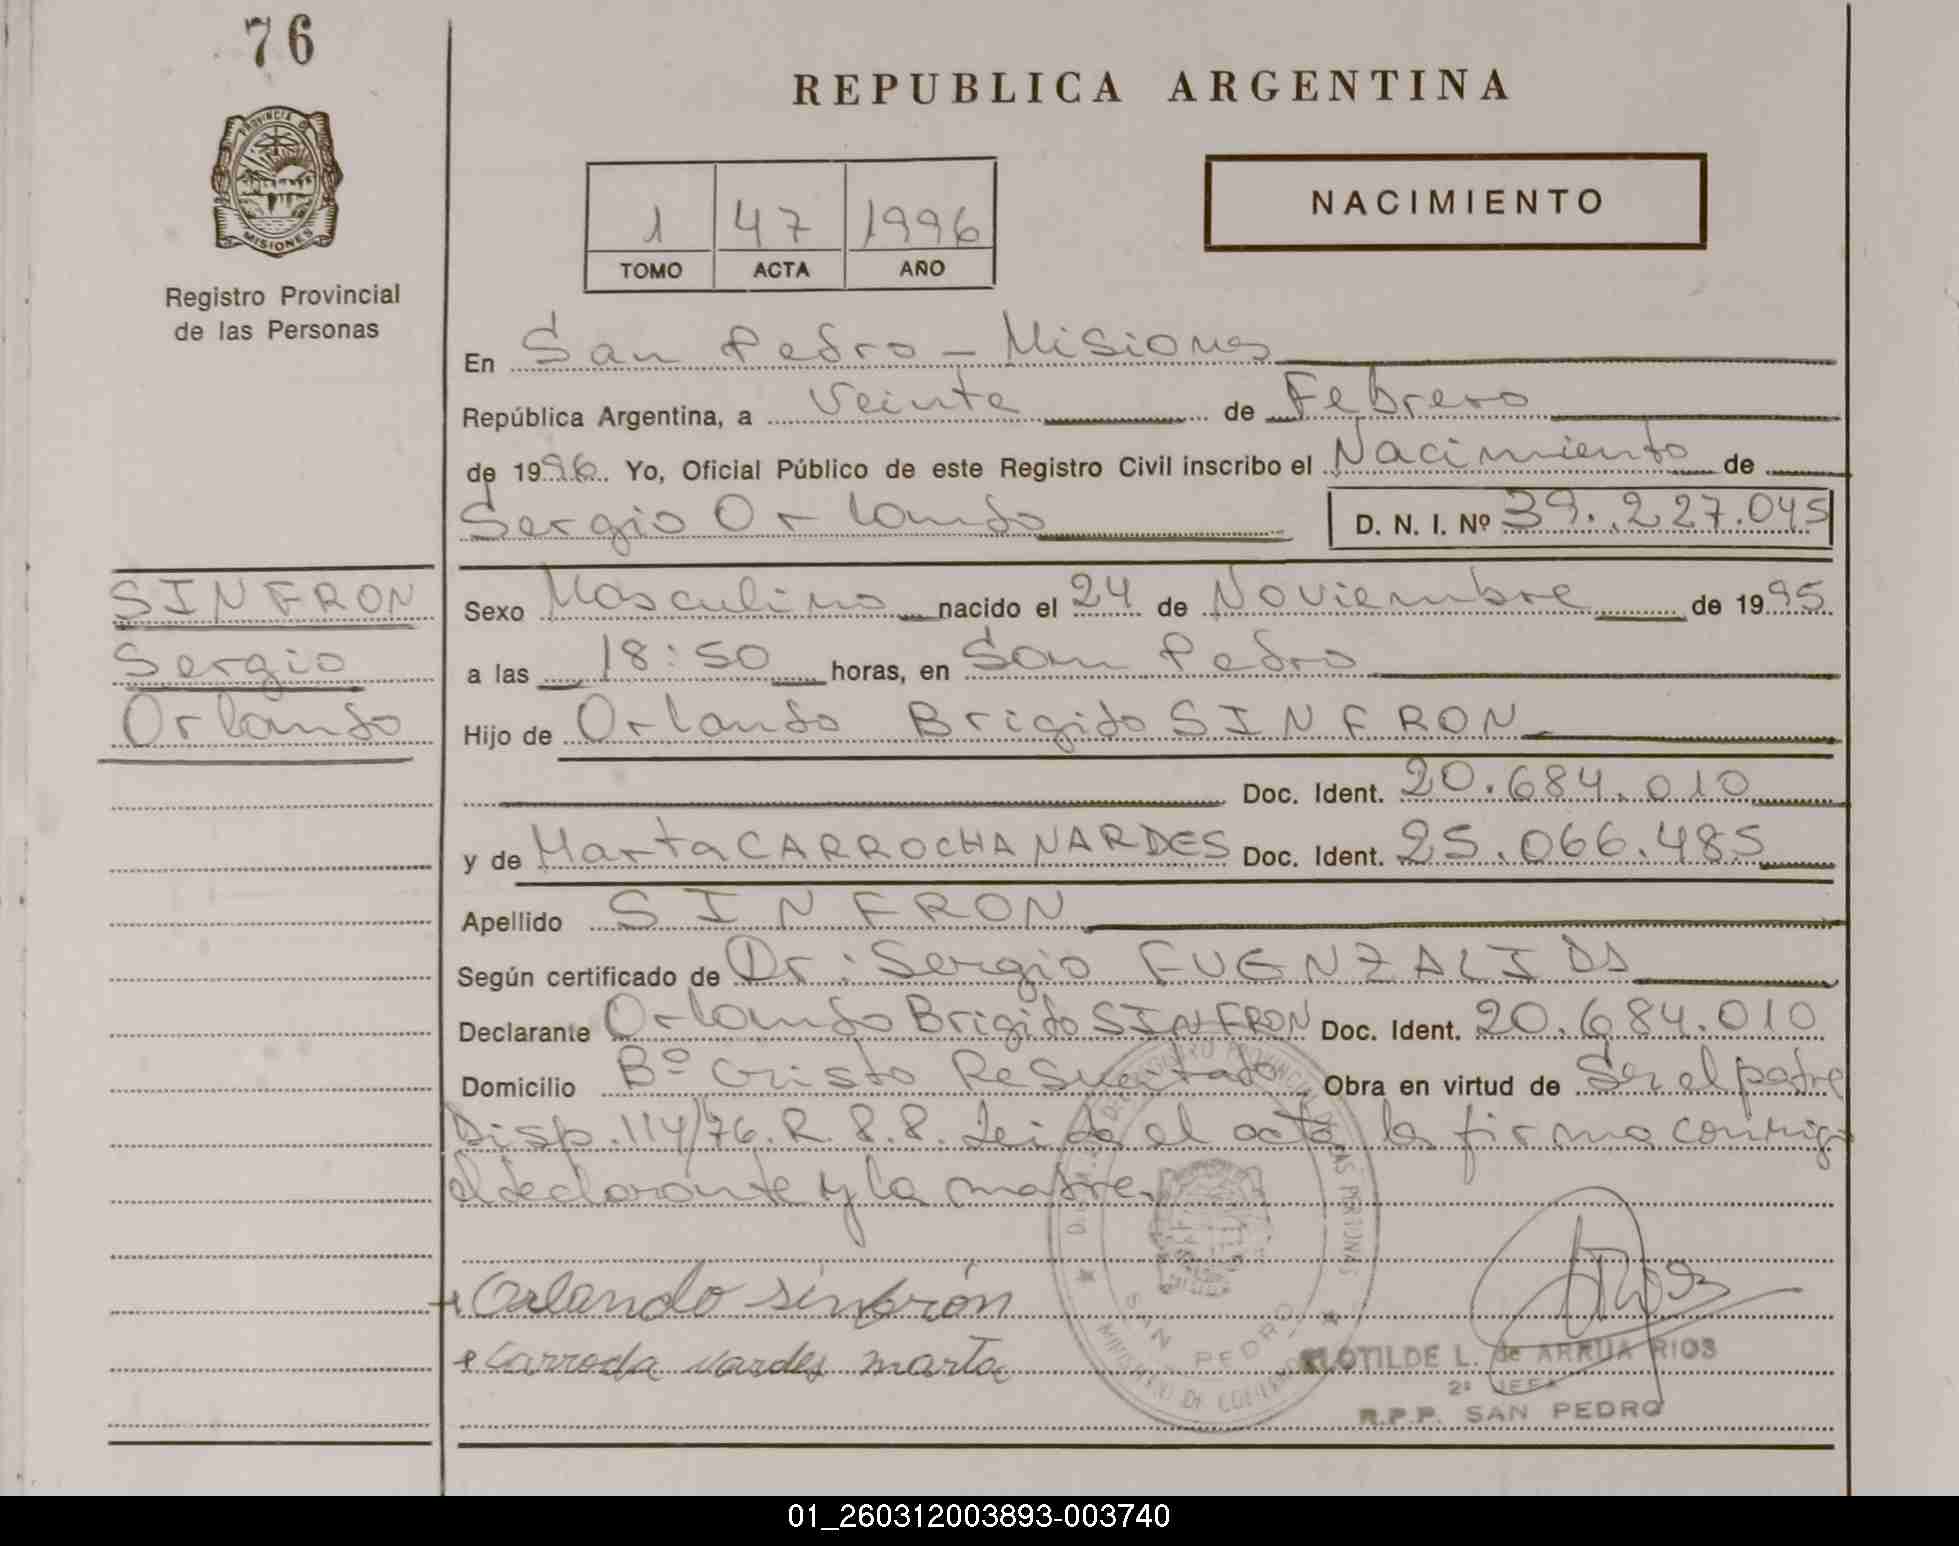 76
REPUBLICA ARGENTINA
PROVINCIA DE
MISIONES
Registro Provincial
de las Personas
1 47 1996
TOMO ACTA AÑO
NACIMIENTO
En San Pedro – Misiones
República Argentina, a Veinte de Febrero
de 1996. Yo, Oficial Público de este Registro Civil inscribo el Nacimiento de
Sergio Orlando D. N. I. Nº 39.227.045
SINFRON
Sergio
Orlando
Sexo Masculino nacido el 24 de Noviembre de 1995
a las 18:50 horas, en San Pedro
Hijo de Orlando Brigido SINFRON
Doc. Ident. 20.684.010
y de Marta CARROCHA NARDES Doc. Ident. 25.066.485
Apellido SINFRON
Según certificado de Dr: Sergio FUENZALIDA
Declarante Orlando Brigido SINFRON Doc. Ident. 20.684.010
Domicilio Bº Cristo Resucitado Obra en virtud de Ser el padre
Disp. 114/76. R. 8.8. Leida el acta la firma conmigo
el declarante y la madre.
Orlando sinfrón
Carroda nardes marta
SAN PEDRO
CLOTILDE L. de ARRUA RIOS
2º JEFA
R.P.P. SAN PEDRO
01_260312003893-003740